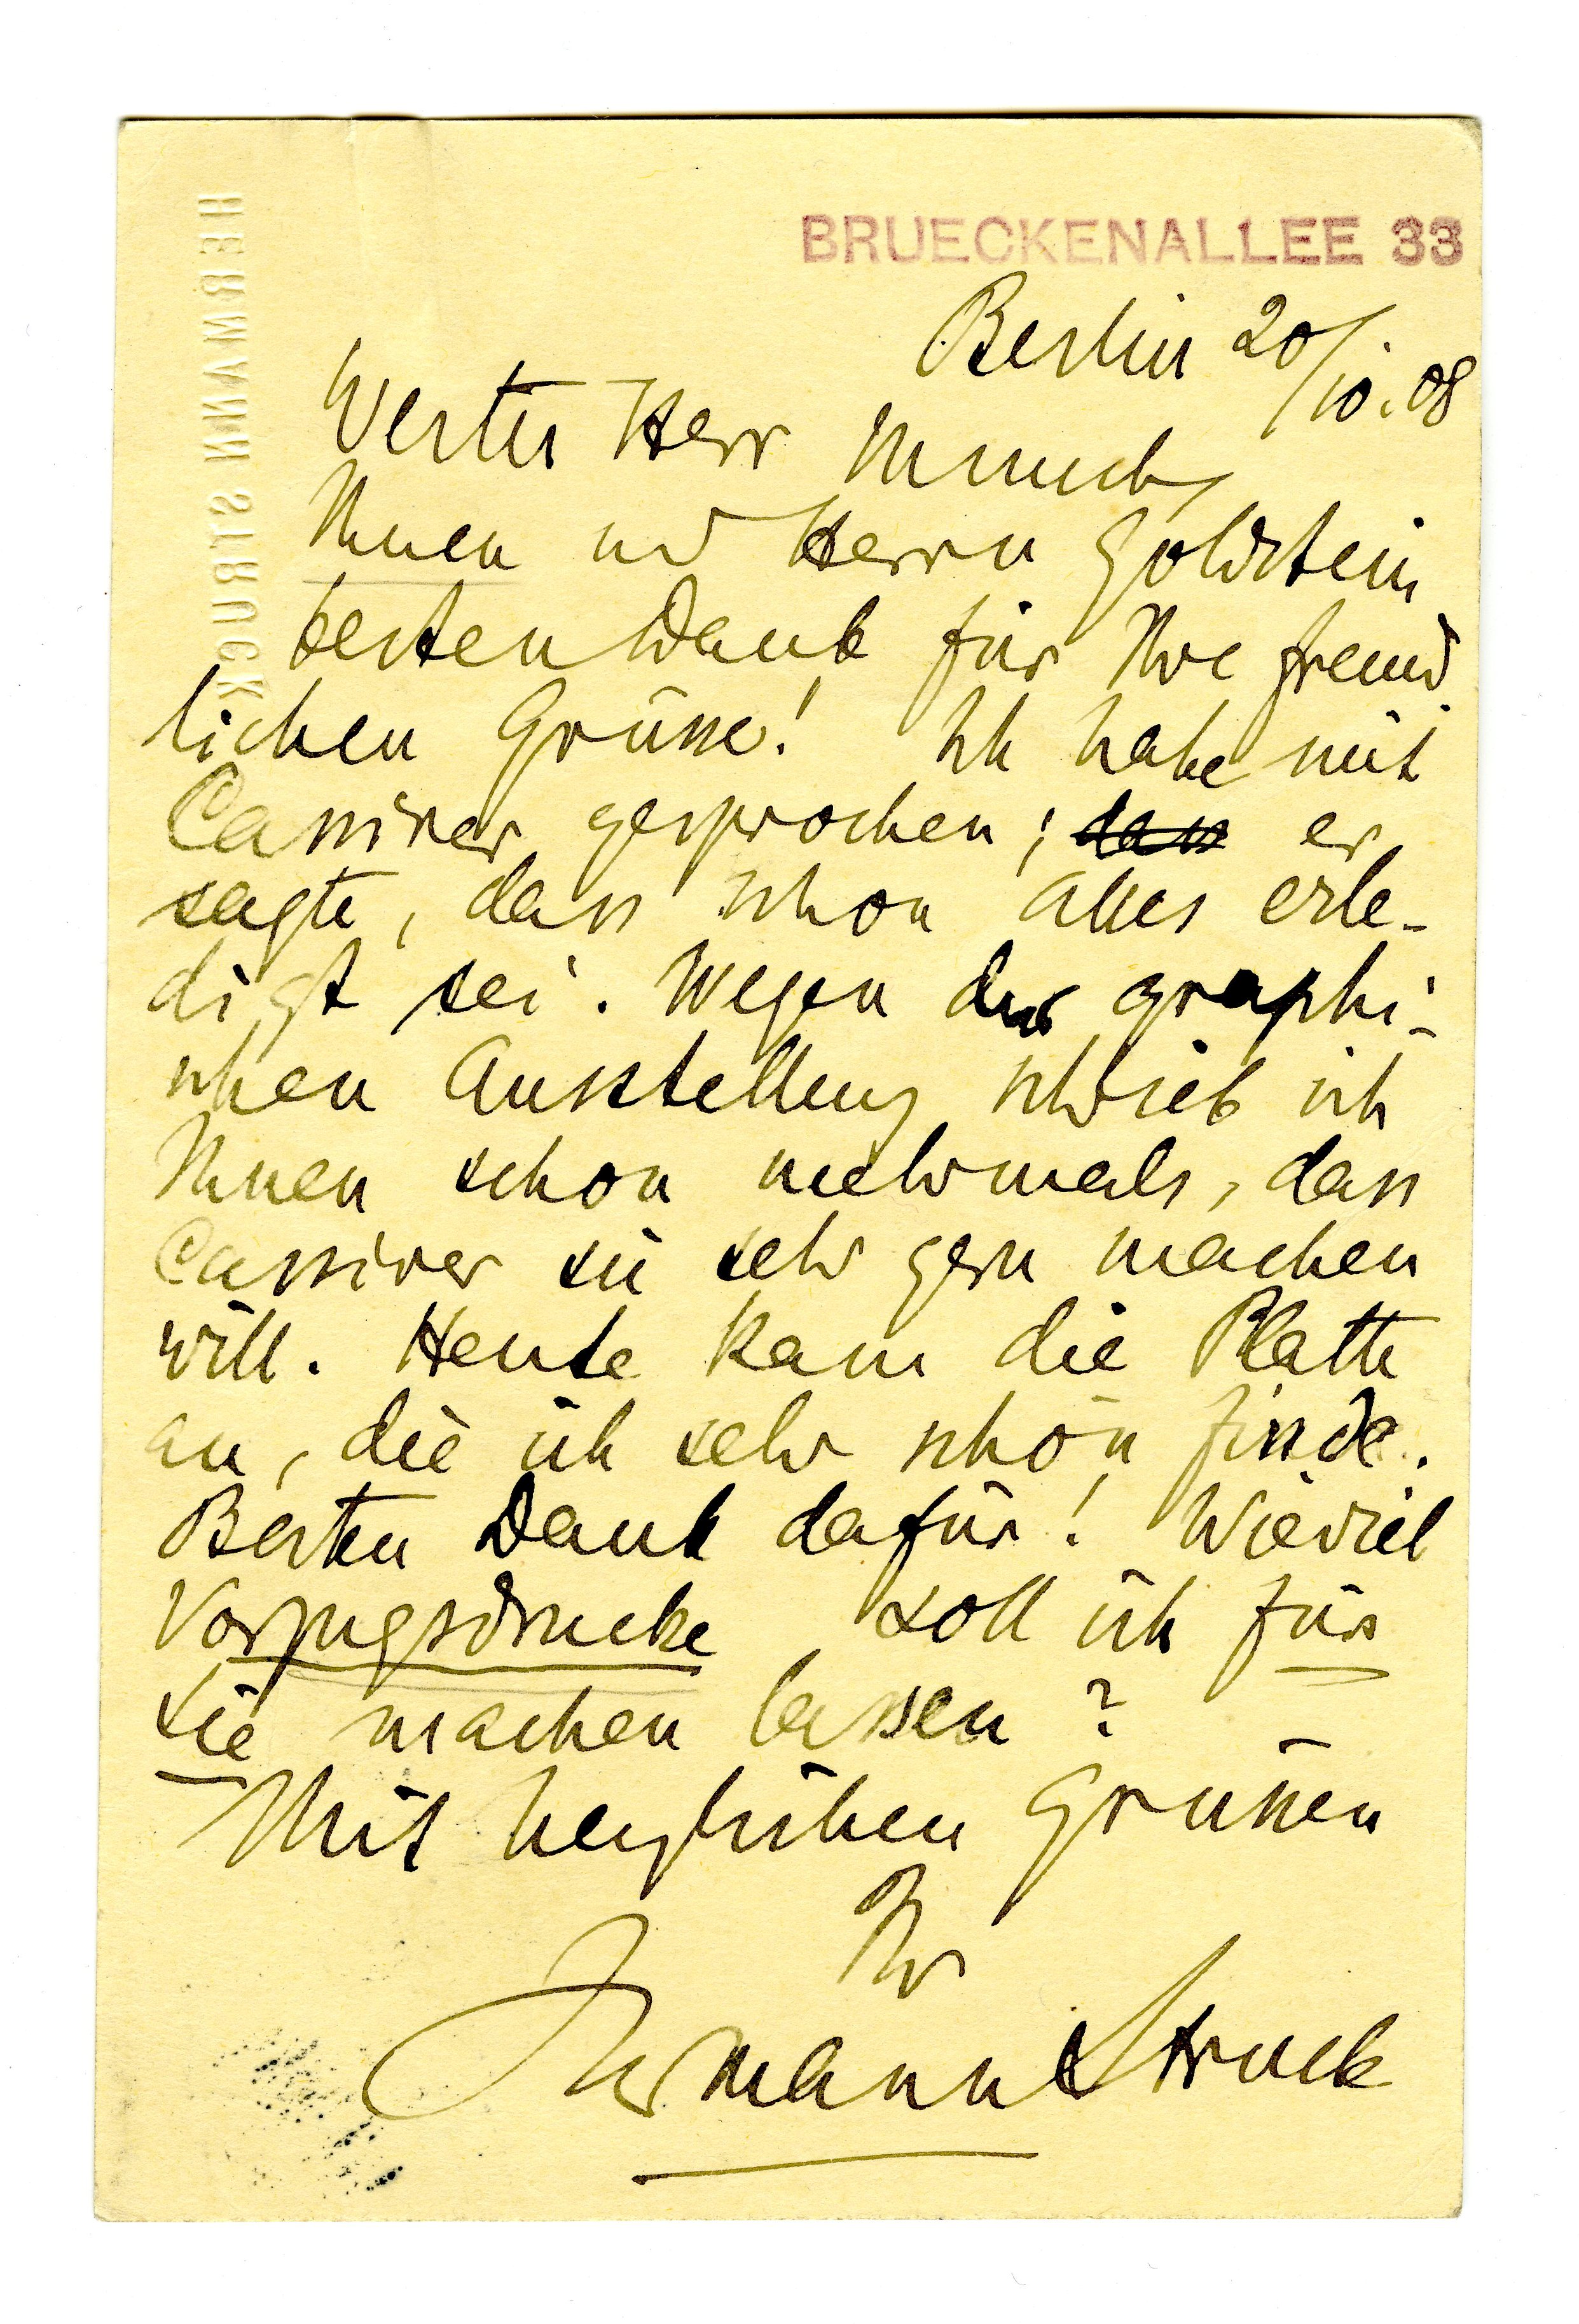 HERMANN STRUCK
BRUECKENALLEE 33
Berlin 20/10.08
Werter Herr Munch,
Ihnen und Herrn Goldstein
besten Dank für Ihre freund
lichen Grüsse! Ich habe mit
Cassirer gesprochen; dass er
sagte, dass schon alles erle-
digt sei. Wegen der graphi-
schen Ausstellung schrieb ich
Ihnen schon mehrmals, dass
Cassirer sie sehr gern machen
will. Heute kam die Platte
an, die ich sehr schön finde.
Besten Dank dafür! Wieviel
Vorzugsdrucke soll ich für
Sie machen lassen?
Mit herzlichen Grüssen
Ihr
Hermann Struck